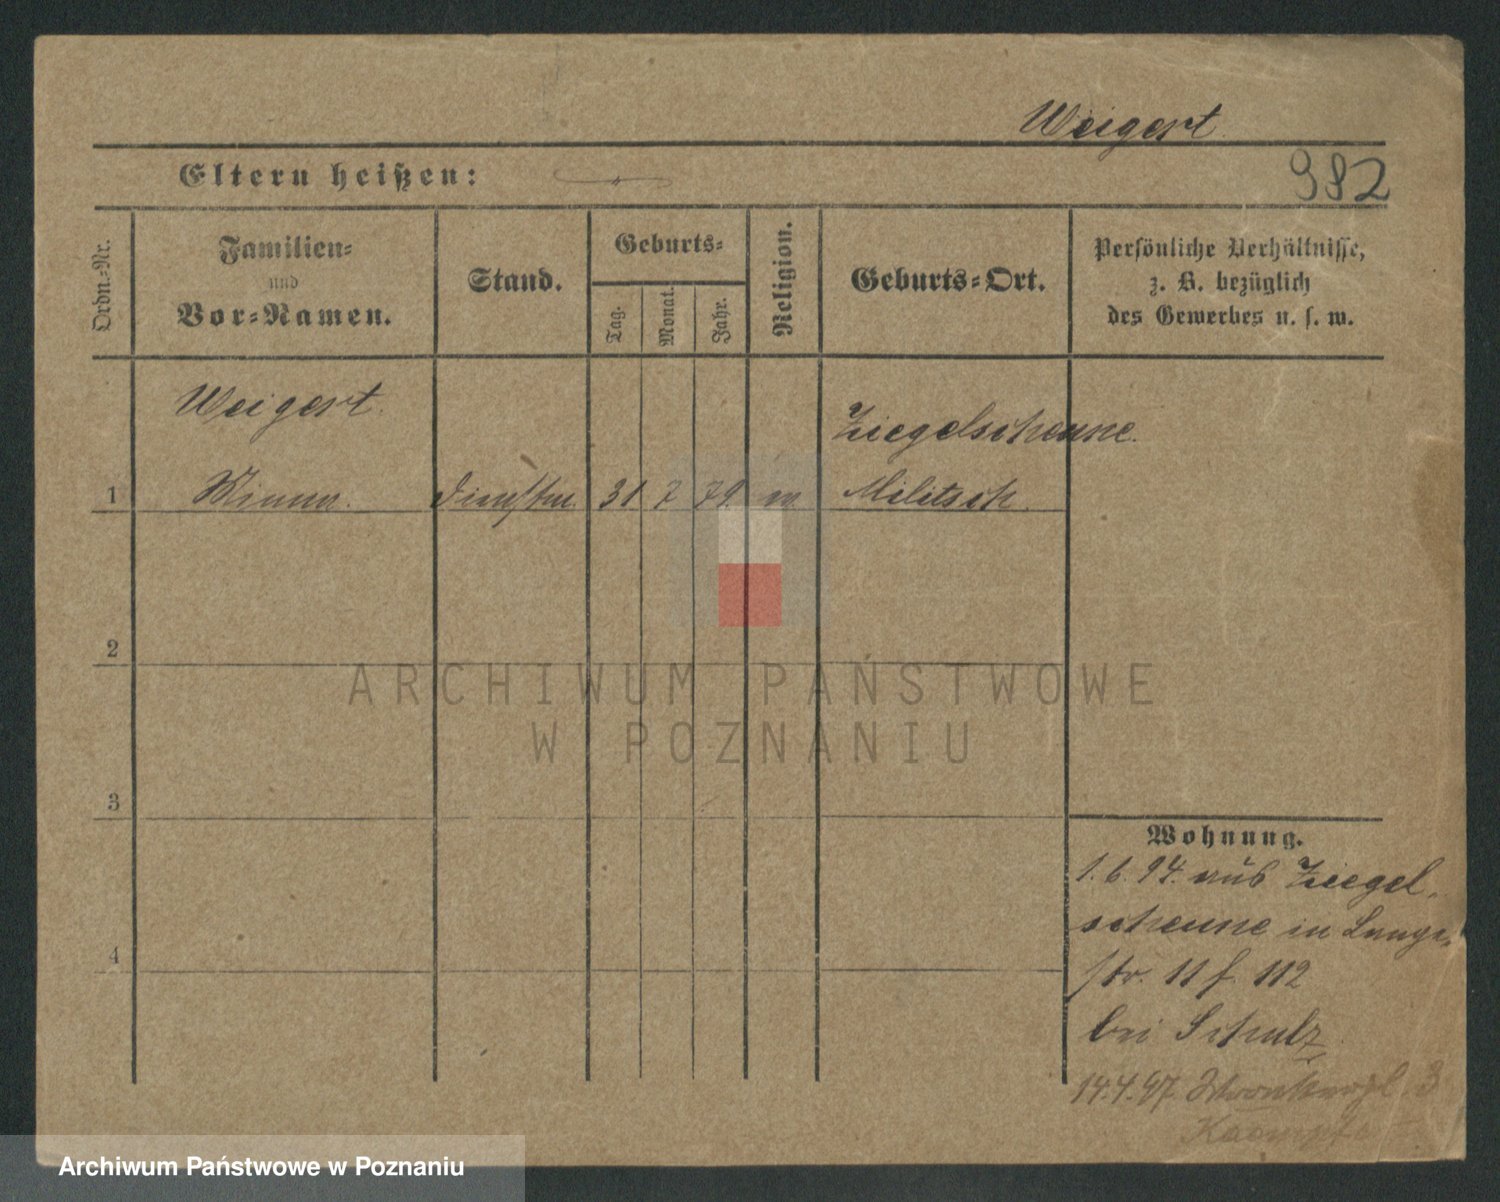 Weigert
982
Eltern heißen:
Ordn.-Nr.
Familien-
und
Vor-Namen.
Stand.
Geburts-
Tag.
Monat.
Jahr.
Religion.
Geburts-Ort.
Persönliche Verhältnisse,
z. B. bezüglich
des Gewerbes u. s. w.
Weigert
Ziegelscheune
1 Dienstm. 31 7 79. Militsch
2
3
4
Wohnung.
1. 6. 94. aus Ziegel-
scheune in Lange-
str. 11 f. 112
bei Schulz
14.4.97. 3
ARCHIWUM PAŃSTWOWE
W POZNANIU
Archiwum Państwowe w Poznaniu